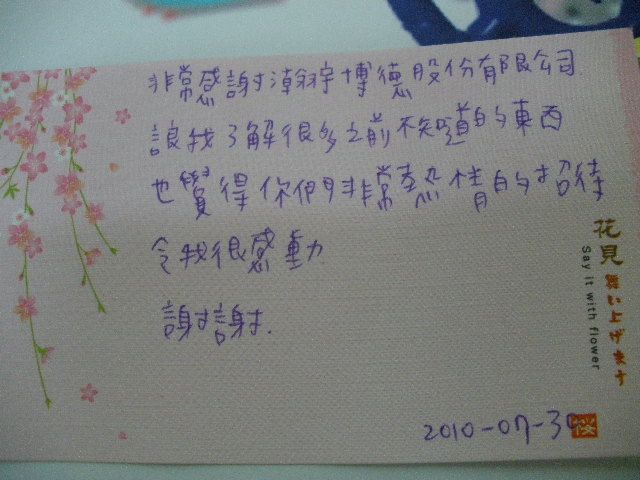 非常感謝瀚宇博德股份有限公司
讓我了解很多之前不知道的東西
也覺得你們非常热情的招待
令我很感動
謝謝.
2010-07-30
花見
Say it with flower
願い上げます
桜